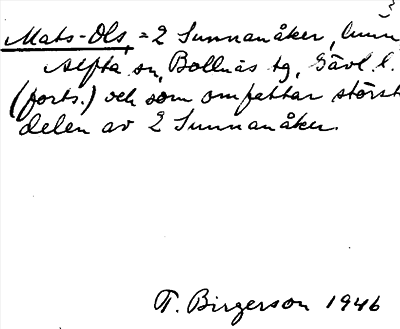 3
Mats-Ols, = 2 Sunnanåker,
Alfta sn, Bollnäs tg, Gävl. l.
(forts.) och som omfattar störst
delen av 2 Sunnanåker.
T. Birgerson 1946